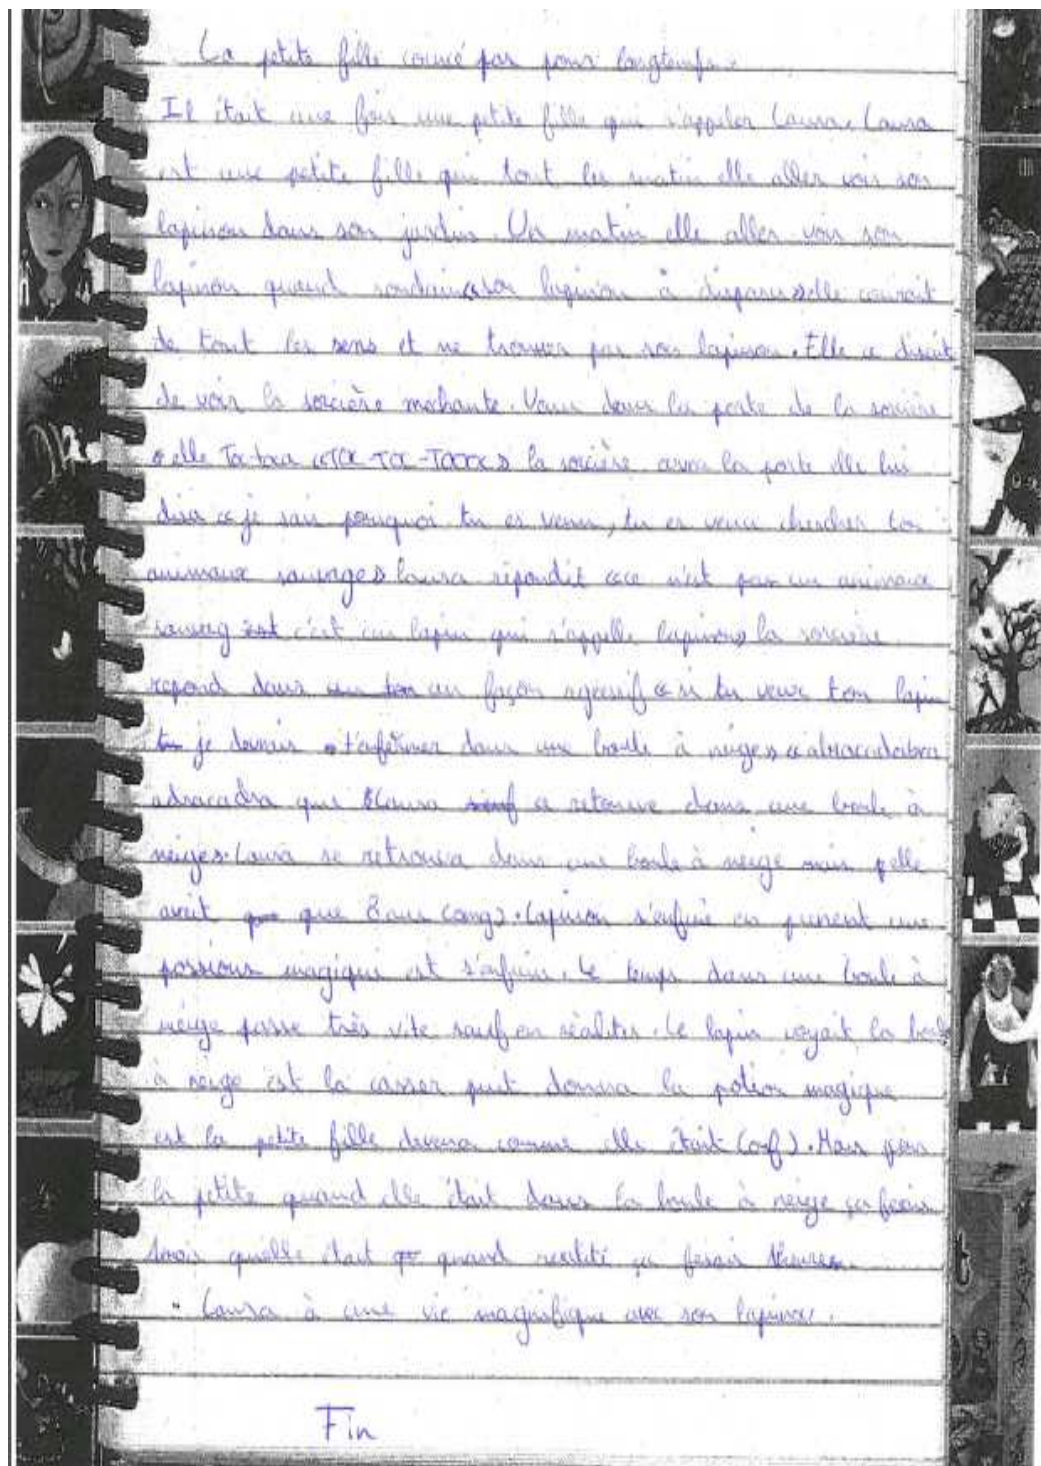 La petite fille coincé pas pour longtemps.
Il était une fois une petite fille qui s'appeler Laura. Laura
est une petite fille qui tout les matin elle aller voir son
lapinou dans son jardin. Un matin elle aller voir son
lapinou quand soudain «son lapinou à disparu» elle courait
de tout les sens et ne trouver pas son lapinou. Elle ce disait
de voir la sorcière mechante. Venu dans la porte de la sorcière
elle Toctoca «TOC-TOC-TOOOC» la sorcière ouvra la porte elle lui
disa «je sais pourquoi tu es venu, tu es venu chercher ton
animaux sauvage» Laura répondit «ce n'est pas un animaux
sauvag c'est un lapin qui s'appelle lapinou» la sorcière
repond dans un façon agressif «si tu veux ton lapin
je devrais t'enfermer dans une boule à neige» «abracadabra
adracadra que Laura ce retrouve dans une boule à
neige». Laura se retrouva dans une boule à neige mais elle
avait que 8 ans (omg). Lapinou s'enfuie en prenent une
possions magique et s'enfuia. Le temps dans une boule à
neige passe très vite sauf en réaliter. Le lapin voyait la boule
à neige est la casser puit donna la potion magique
est la petite fille devena comme elle était (ouf). Mais pour
la petite quand elle était dans la boule à neige ça fesais
1mois quelle était quand realité ça fesais 1heures.
Laura à une vie magnifique avec son lapinou.
Fin